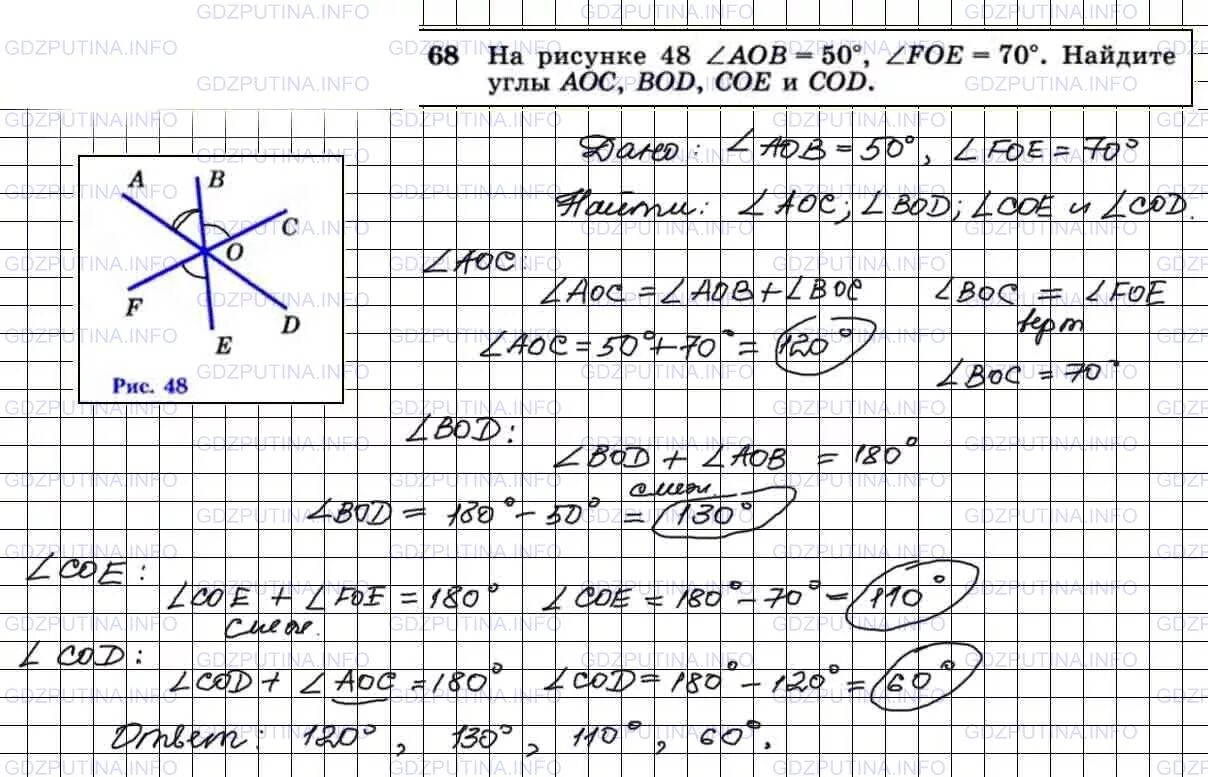 GDZPUTINA.INFO
68 На рисунке 48 ∠AOB = 50°, ∠FOE = 70°. Найдите
углы AOC, BOD, COE и COD.
Дано: ∠AOB = 50°, ∠FOE = 70°
Найти: ∠AOC; ∠BOD; ∠COE и ∠COD.
A B
C
O
F
D
E
Рис. 48
∠AOC:
∠AOC = ∠AOB + ∠BOC ∠BOC = ∠FOE
верт
∠AOC = 50° + 70° = 120°
∠BOC = 70°
∠BOD:
∠BOD + ∠AOB = 180°
смеж.
∠BOD = 180° - 50° = 130°
∠COE:
∠COE + ∠FOE = 180° ∠COE = 180° - 70° = 110°
смеж.
∠COD:
∠COD + ∠AOC = 180° ∠COD = 180° - 120° = 60°
Ответ: 120°, 130°, 110°, 60°.